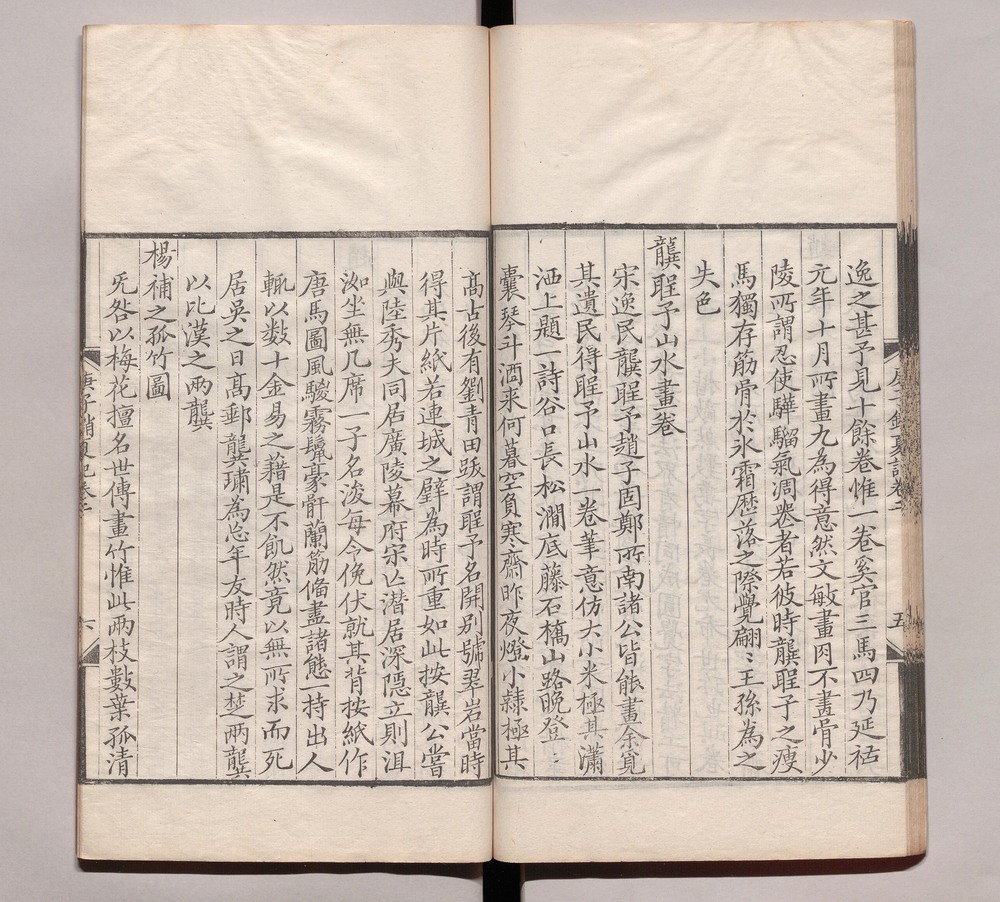 逸之甚予見十餘卷惟一卷奚官三馬四乃延祐
元年十月所畫九為得意然文敏畫肉不畫骨少
陵所謂忍使驊騮氣凋喪者若彼時龔聖予之瘦
馬獨存筋骨於氷霜歷落之際覺翩〻王孫為之
失色
龔聖予山水畫卷
宋逸民龔聖予趙子固鄭所南諸公皆能畫余覓
其遺民得聖予山水一卷筆意仿大小米極其瀟
洒上題一詩谷口長松澗底藤石橋山路晚登〻
囊琴斗酒来何暮空負寒齋昨夜燈小隷極其
高古後有劉青田跋謂聖予名開別號翠岩當時
得其片紙若連城之璧為時所重如此按龔公嘗
與陸秀夫同居廣陵幕府宋亡潛居深隱立則沮
洳坐無几席一子名浚每令俛伏就其背按紙作
唐馬圖風騣霧鬣豪骭蘭筋備盡諸態一持出人
輒以数十金易之藉是不飢然竟以無所求而死
居吳之日高郵龔璛為忘年友時人謂之楚兩龔
以比漢之兩龔
楊補之孤竹圖
旡咎以梅花擅名世傳畫竹惟此兩枝數葉孤清
庚子銷夏記卷二
五
六